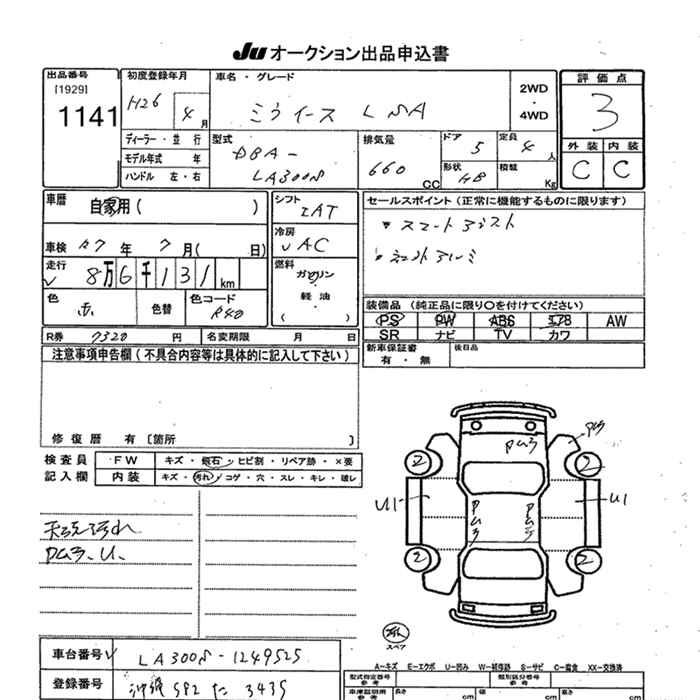 Ju オークション出品申込書
出品番号
[1929]
1141
初度登録年月
H26 4 月
車名・グレード
ミライース L SA
2WD
・
4WD
評価点
3
外装 内装
C C
ディーラー・並行
モデル年式 年
ハンドル 左・右
型式
DBA-
LA300S
排気量
660 CC
ドア 5
形状 HB
定員 4 人
積載 Kg
車歴 自家用( )
車検 R7 年 7 月( 日)
走行
8万6千131km
色 赤 色替 色コード R40
シフト
IAT
冷房
AC
燃料
ガソリン
・
軽油
( )
セールスポイント(正常に機能するものに限ります)
スマートアシスト
社外アルミ
装備品(純正品に限り○を付けてください)
PS PW ABS エアB AW
SR ナビ TV カワ
新車保証書 後日品
有・無
R券 7320 円 名変期限 月 日
注意事項申告欄(不具合内容等は具体的に記入して下さい)
修復歴 有 [箇所 ]
検査員 FW キズ・飛石・ヒビ割・リペア跡・×要
記入欄 内装 キズ・汚れ・コゲ・穴・スレ・キレ・破レ
天張汚れ
PUラ、U、
PUラ
PUラ
PUラ
PUラ
2 2
U1 U1
2 2
スペア
車台番号 LA300S-1249525
登録番号 沖縄 582 た 3435
A-キズ E-エクボ U-凹み W-補修跡 S-サビ C-腐食 XX-交換済
型式指定番号
参考
類別区分番号
参考
車庫証明用
参考
長さ cm
幅 cm
高さ cm